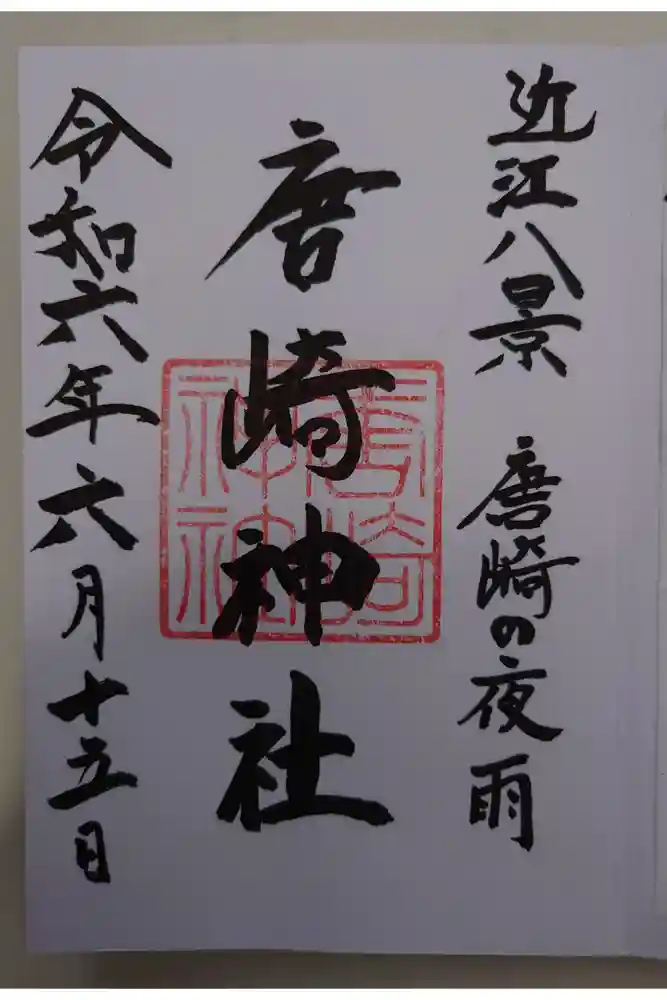 近江八景　唐崎の夜雨
唐崎神社
唐崎
神社
令和六年六月十五日